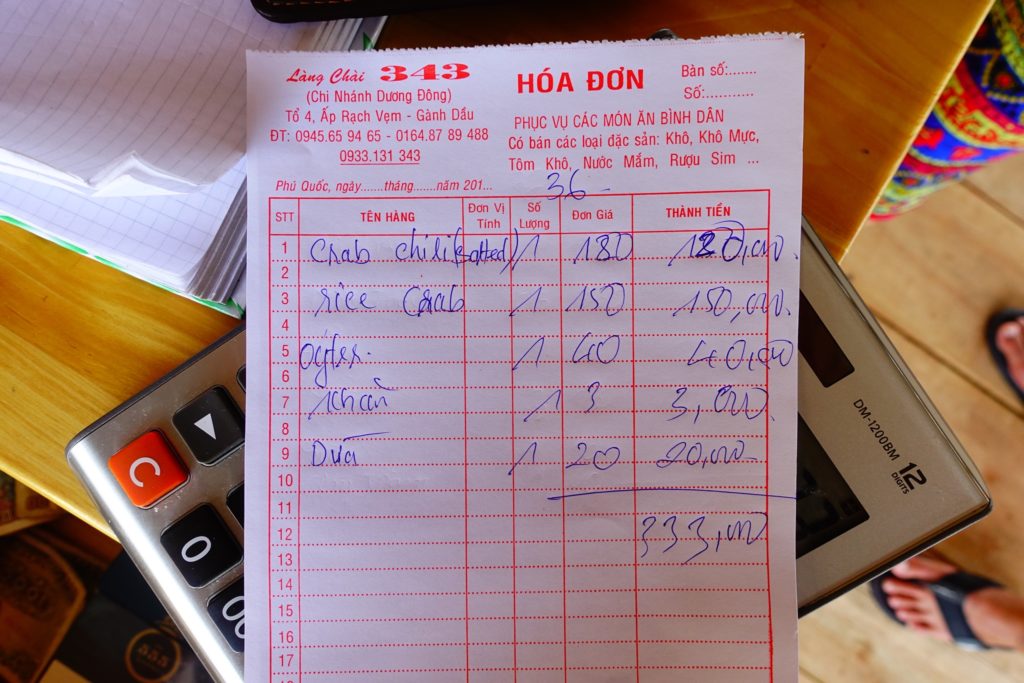 Làng Chài 343
(Chi Nhánh Dương Đông)
Tổ 4, Ấp Rạch Vẹm - Gành Dầu
ĐT: 0945.65 94 65 - 0164.87 89 488
0933.131 343
HÓA ĐƠN
Bàn số:.......
Số:...........
PHỤC VỤ CÁC MÓN ĂN BÌNH DÂN
Có bán các loại đặc sản: Khô, Khô Mực,
Tôm Khô, Nước Mắm, Rượu Sim ...
Phú Quốc, ngày.......tháng.......năm 201...
36
STT TÊN HÀNG Đơn Vị Tính Số Lượng Đơn Giá THÀNH TIỀN
1 Crab chili 1 180 120,000
2
3 rice Crab 1 150 150,000
4
5 1 40 40,000
6
7 khăn 1 3 3,000
8
9 Dừa 1 20 20,000
10
11
12 333,000
13
14
15
16
17
C
0
00
DM-1200BM
12
DIGITS